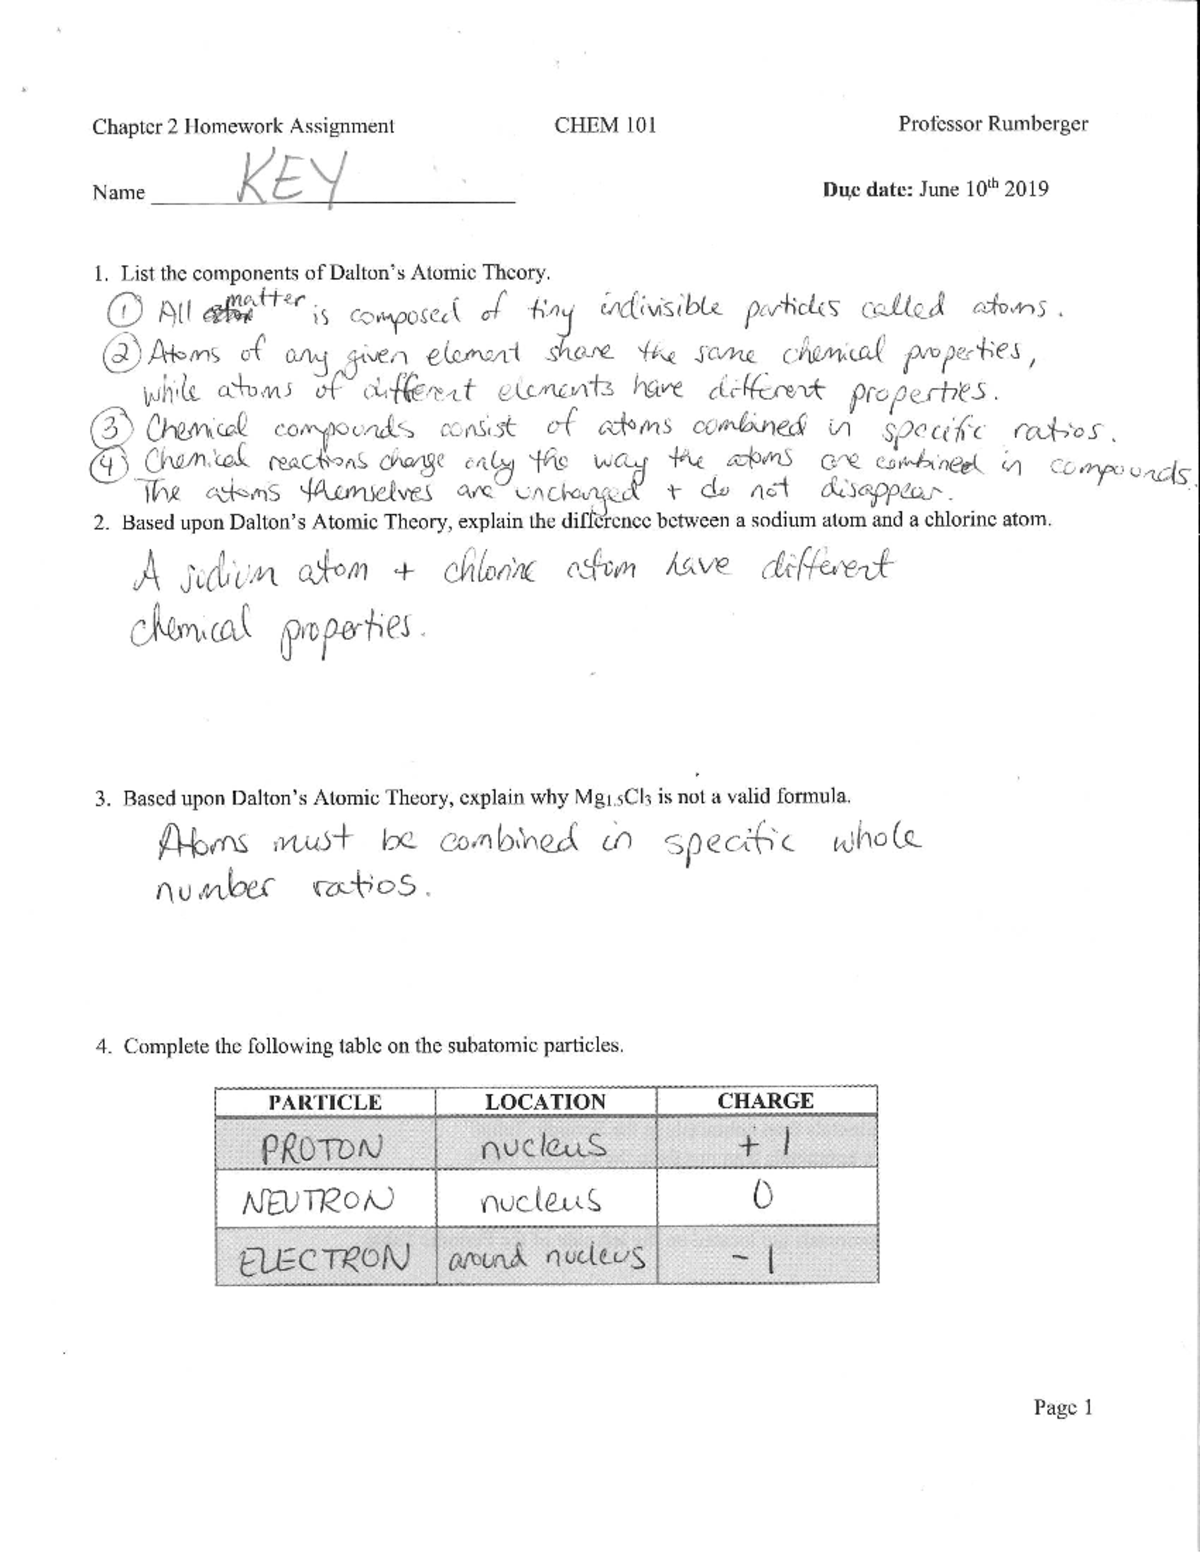 Chapter 2 Homework Assignment CHEM 101 Professor Rumberger
Name KEY Due date: June 10th 2019
1. List the components of Dalton's Atomic Theory.
① All matter is composed of tiny indivisible particles called atoms.
② Atoms of any given element share the same chemical properties,
while atoms of different elements have different properties.
③ Chemical compounds consist of atoms combined in specific ratios.
④ Chemical reactions change only the way the atoms are combined in compounds.
The atoms themselves are unchanged + do not disappear.
2. Based upon Dalton's Atomic Theory, explain the difference between a sodium atom and a chlorine atom.
A sodium atom + chlorine atom have different
chemical properties.
3. Based upon Dalton's Atomic Theory, explain why Mg1.5Cl3 is not a valid formula.
Atoms must be combined in specific whole
number ratios.
4. Complete the following table on the subatomic particles.
PARTICLE LOCATION CHARGE
PROTON nucleus +1
NEUTRON nucleus 0
ELECTRON around nucleus -1
Page 1